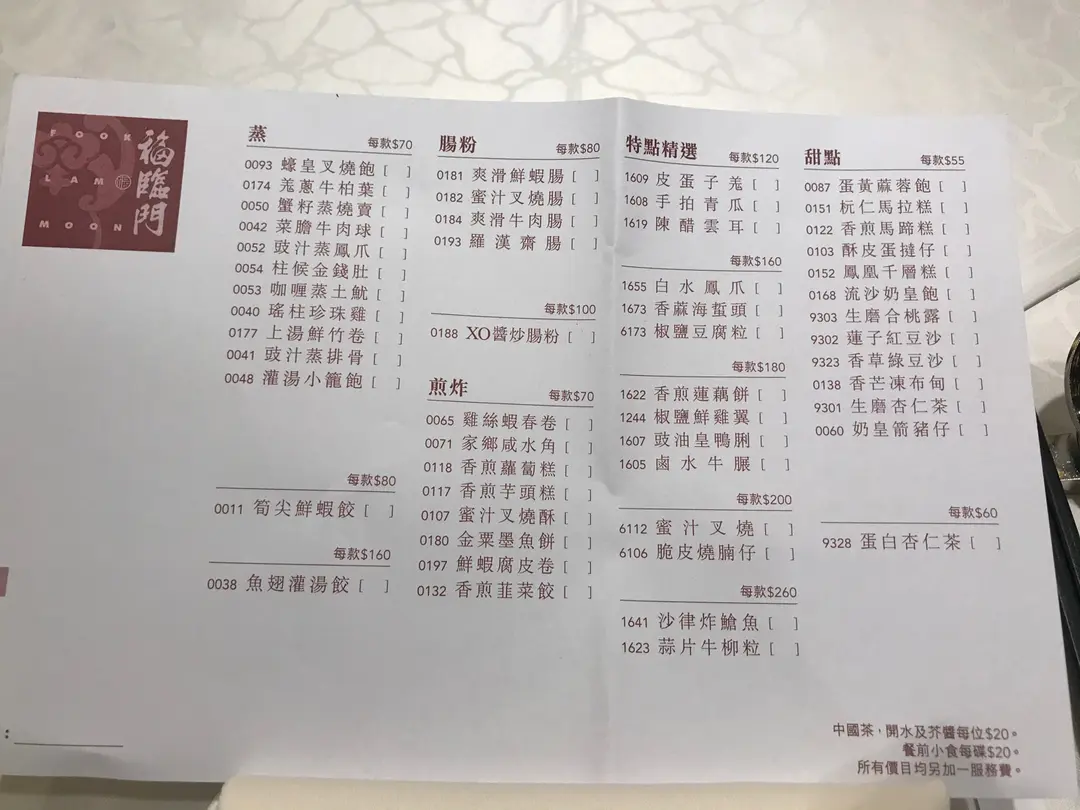 福臨門
FOOK
LAM
MOON
蒸 每款$70
0093 蠔皇叉燒飽 [ ]
0174 羗蔥牛柏葉 [ ]
0050 蟹籽蒸燒賣 [ ]
0042 菜膽牛肉球 [ ]
0052 豉汁蒸鳳爪 [ ]
0054 柱候金錢肚 [ ]
0053 咖喱蒸土魷 [ ]
0040 瑤柱珍珠雞 [ ]
0177 上湯鮮竹卷 [ ]
0041 豉汁蒸排骨 [ ]
0048 灌湯小籠飽 [ ]
每款$80
0011 筍尖鮮蝦餃 [ ]
每款$160
0038 魚翅灌湯餃 [ ]
腸粉 每款$80
0181 爽滑鮮蝦腸 [ ]
0182 蜜汁叉燒腸 [ ]
0184 爽滑牛肉腸 [ ]
0193 羅漢齋腸 [ ]
每款$100
0188 XO醬炒腸粉 [ ]
煎炸 每款$70
0065 雞絲蝦春卷 [ ]
0071 家鄉咸水角 [ ]
0118 香煎蘿蔔糕 [ ]
0117 香煎芋頭糕 [ ]
0107 蜜汁叉燒酥 [ ]
0180 金粟墨魚餅 [ ]
0197 鮮蝦腐皮卷 [ ]
0132 香煎韮菜餃 [ ]
特點精選 每款$120
1609 皮蛋子羗 [ ]
1608 手拍青瓜 [ ]
1619 陳醋雲耳 [ ]
每款$160
1655 白水鳳爪 [ ]
1673 香蔴海蜇頭 [ ]
6173 椒鹽豆腐粒 [ ]
每款$180
1622 香煎蓮藕餅 [ ]
1244 椒鹽鮮雞翼 [ ]
1607 豉油皇鴨脷 [ ]
1605 鹵水牛𦟌 [ ]
每款$200
6112 蜜汁叉燒 [ ]
6106 脆皮燒腩仔 [ ]
每款$260
1641 沙律炸鯧魚 [ ]
1623 蒜片牛柳粒 [ ]
甜點 每款$55
0087 蛋黃蔴蓉飽 [ ]
0151 杬仁馬拉糕 [ ]
0122 香煎馬蹄糕 [ ]
0103 酥皮蛋撻仔 [ ]
0152 鳳凰千層糕 [ ]
0168 流沙奶皇飽 [ ]
9303 生磨合桃露 [ ]
9302 蓮子紅豆沙 [ ]
9323 香草綠豆沙 [ ]
0138 香芒凍布甸 [ ]
9301 生磨杏仁茶 [ ]
0060 奶皇箭豬仔 [ ]
每款$60
9328 蛋白杏仁茶 [ ]
中國茶，開水及芥醬每位$20。
餐前小食每碟$20。
所有價目均另加一服務費。
: